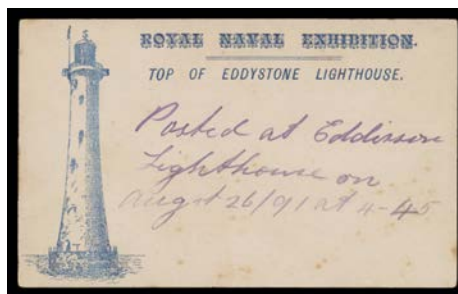 ROYAL NAVAL EXHIBITION.
TOP OF EDDYSTONE LIGHTHOUSE.
Posted at Eddisson
Lighthouse on
Augst 26/91 at 4-45